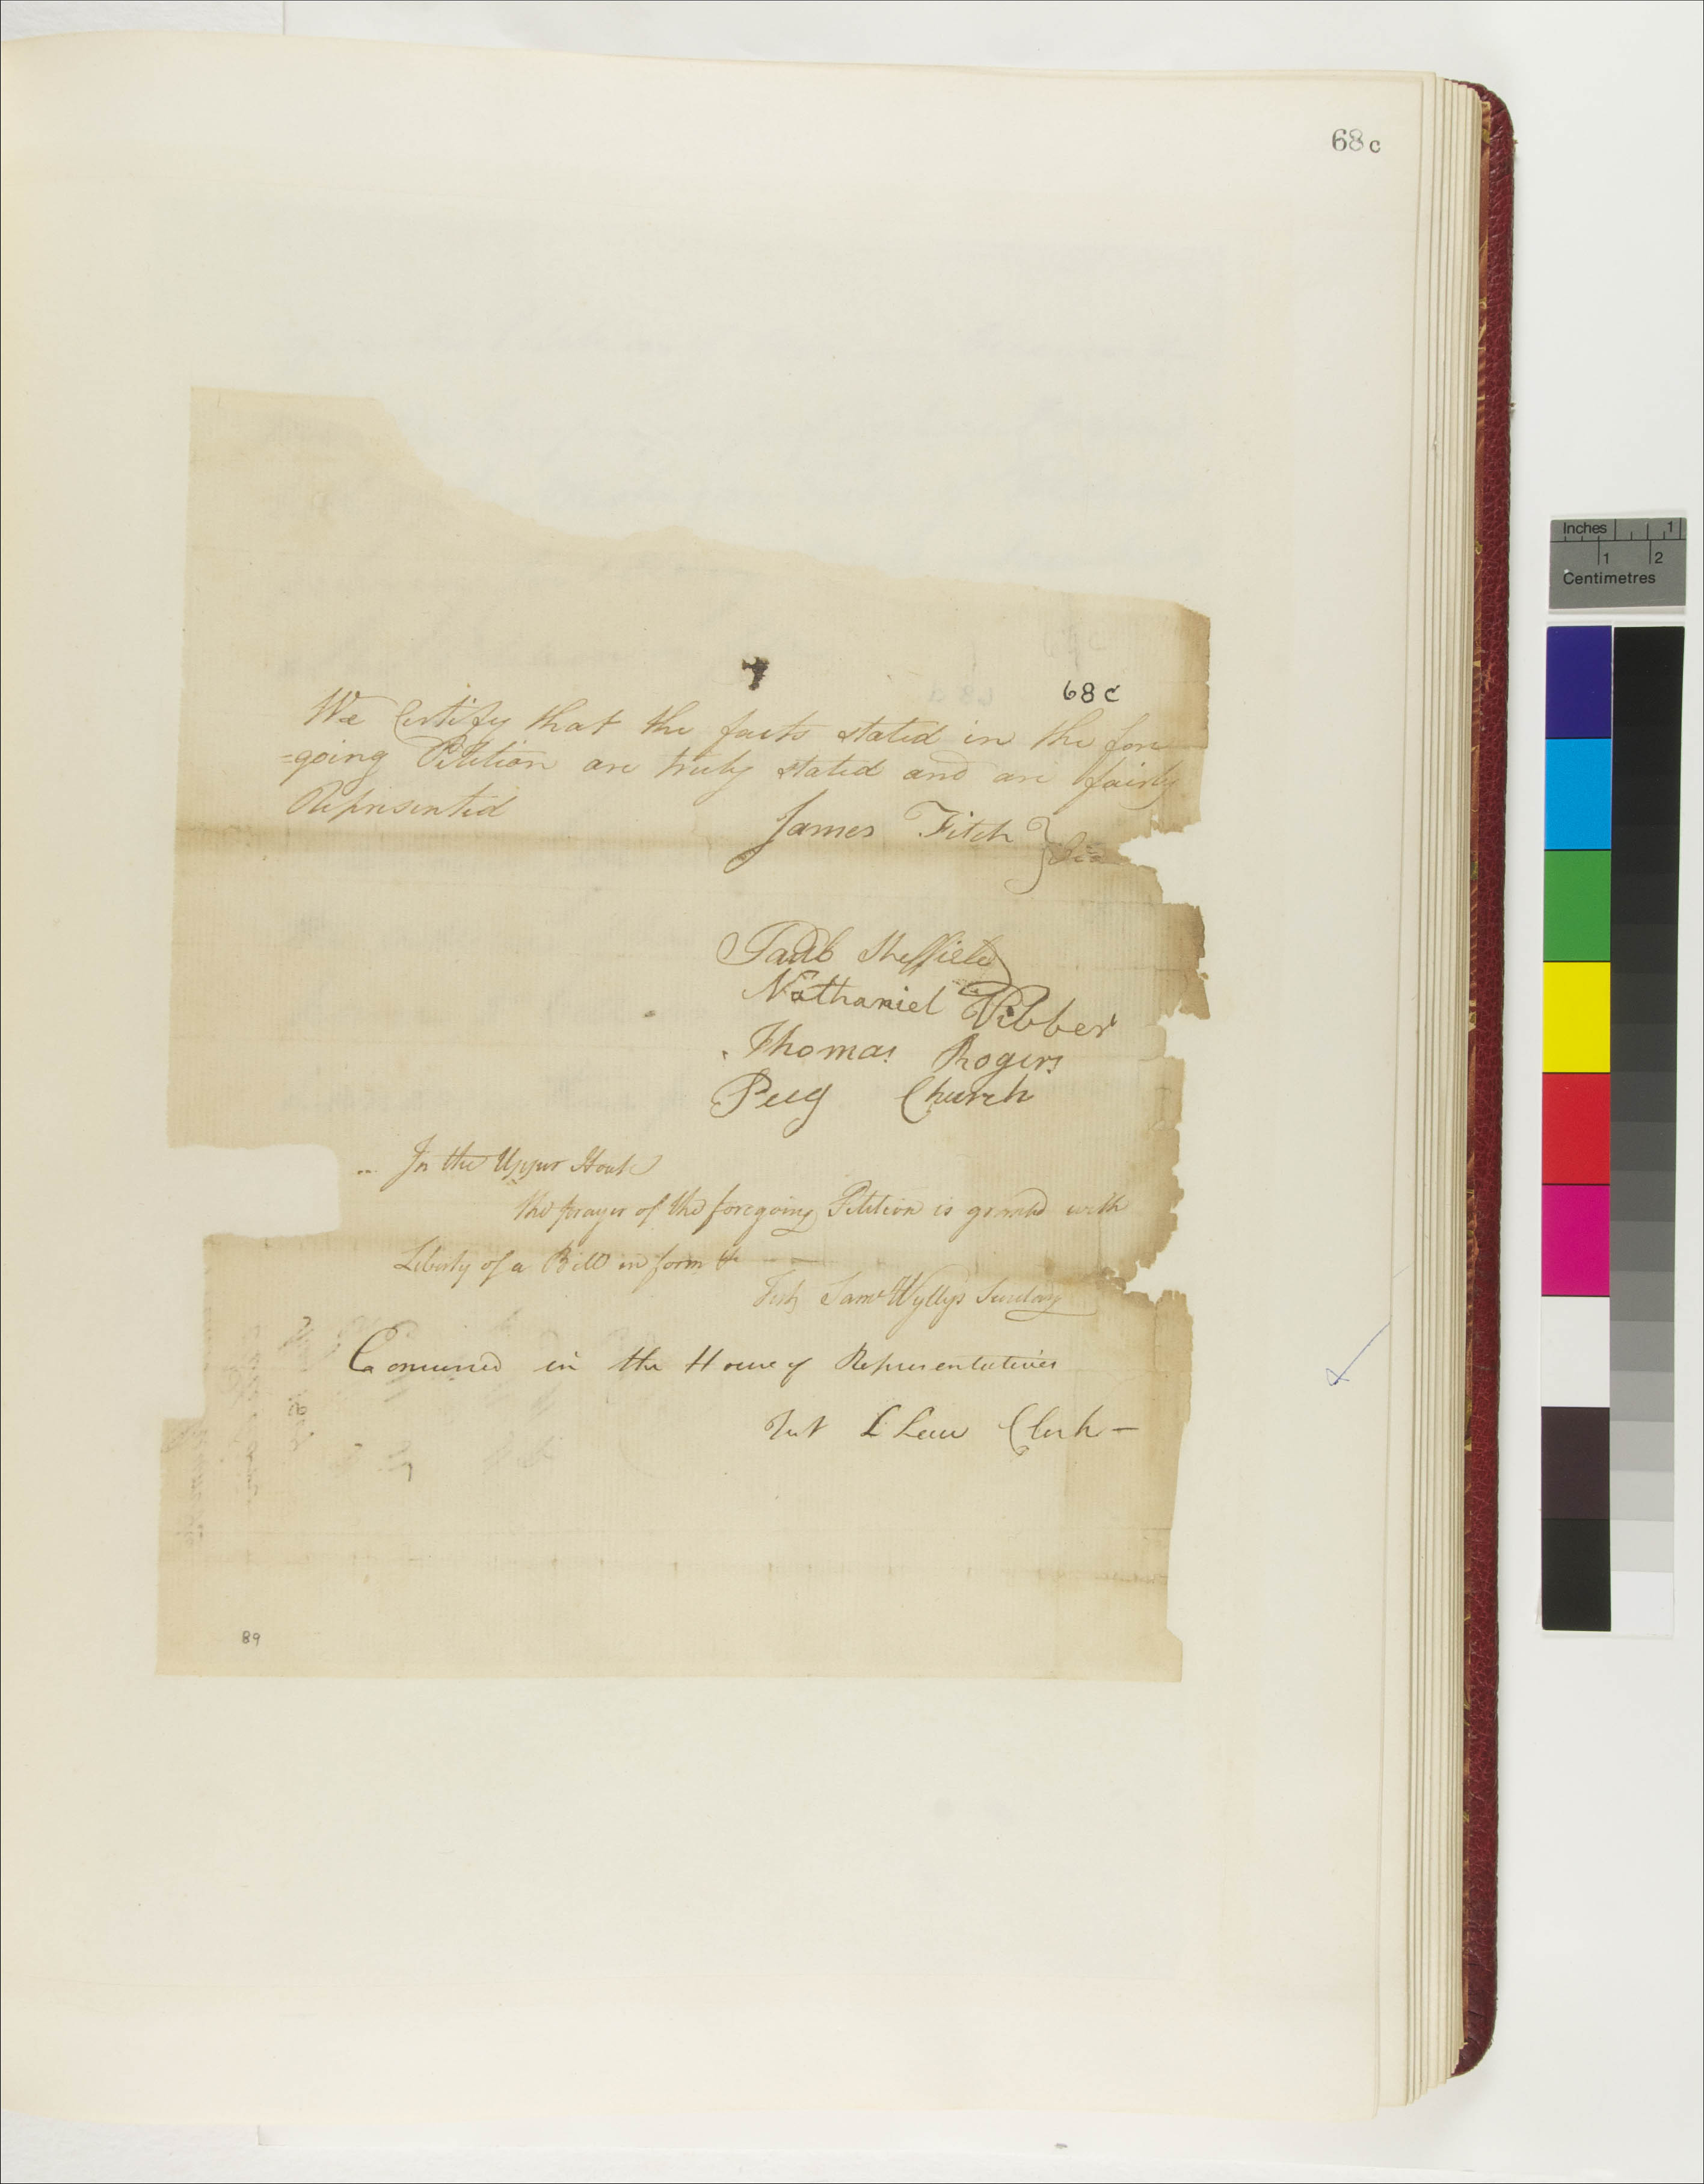 68c
68 c
We Certify that the facts stated in the fore
=going Petition are truly stated and are fairly
Represented
James Fitch
Sheffield
Nathaniel Vibber
Thomas Rogers
Peeg Church
In the Upper House
the prayer of the foregoing Petition is granted with
Liberty of a Bill in form &c
Test Saml Wyllys Secretary
Concurred in the House of Representatives
Test L Law Clerk -
89
Inches 1
1 2
Centimetres